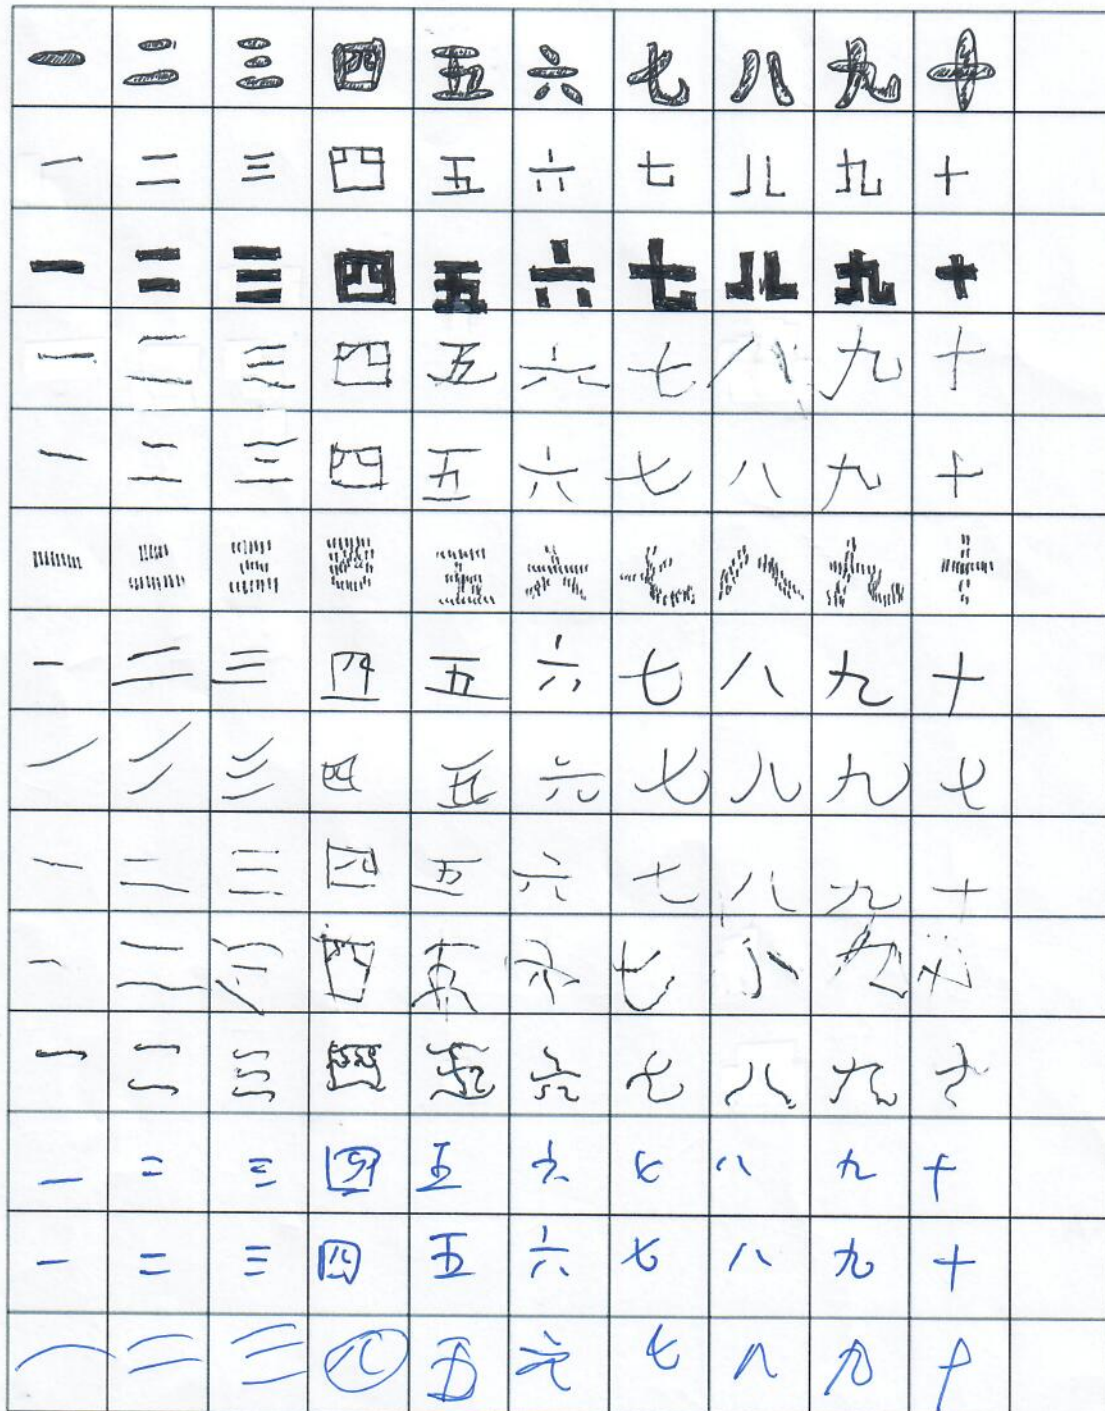 一 二 三 四 五 六 七 八 九 十
一 二 三 四 五 六 七 八 九 十
一 二 三 四 五 六 七 八 九 十
一 二 三 四 五 六 七 八 九 十
一 二 三 四 五 六 七 八 九 十
一 二 三 四 五 六 七 八 九 十
一 二 三 四 五 六 七 八 九 十
一 二 三 四 五 六 七 八 九 七
一 二 三 四 五 六 七 八 九 十
一 二 三 四 五 六 七 八 九
一 二 三 四 五 六 七 八 九 十
一 二 三 四 五 六 七 八 九 十
一 二 三 四 五 六 七 八 九 十
一 二 三 四 五 六 七 八 九 十